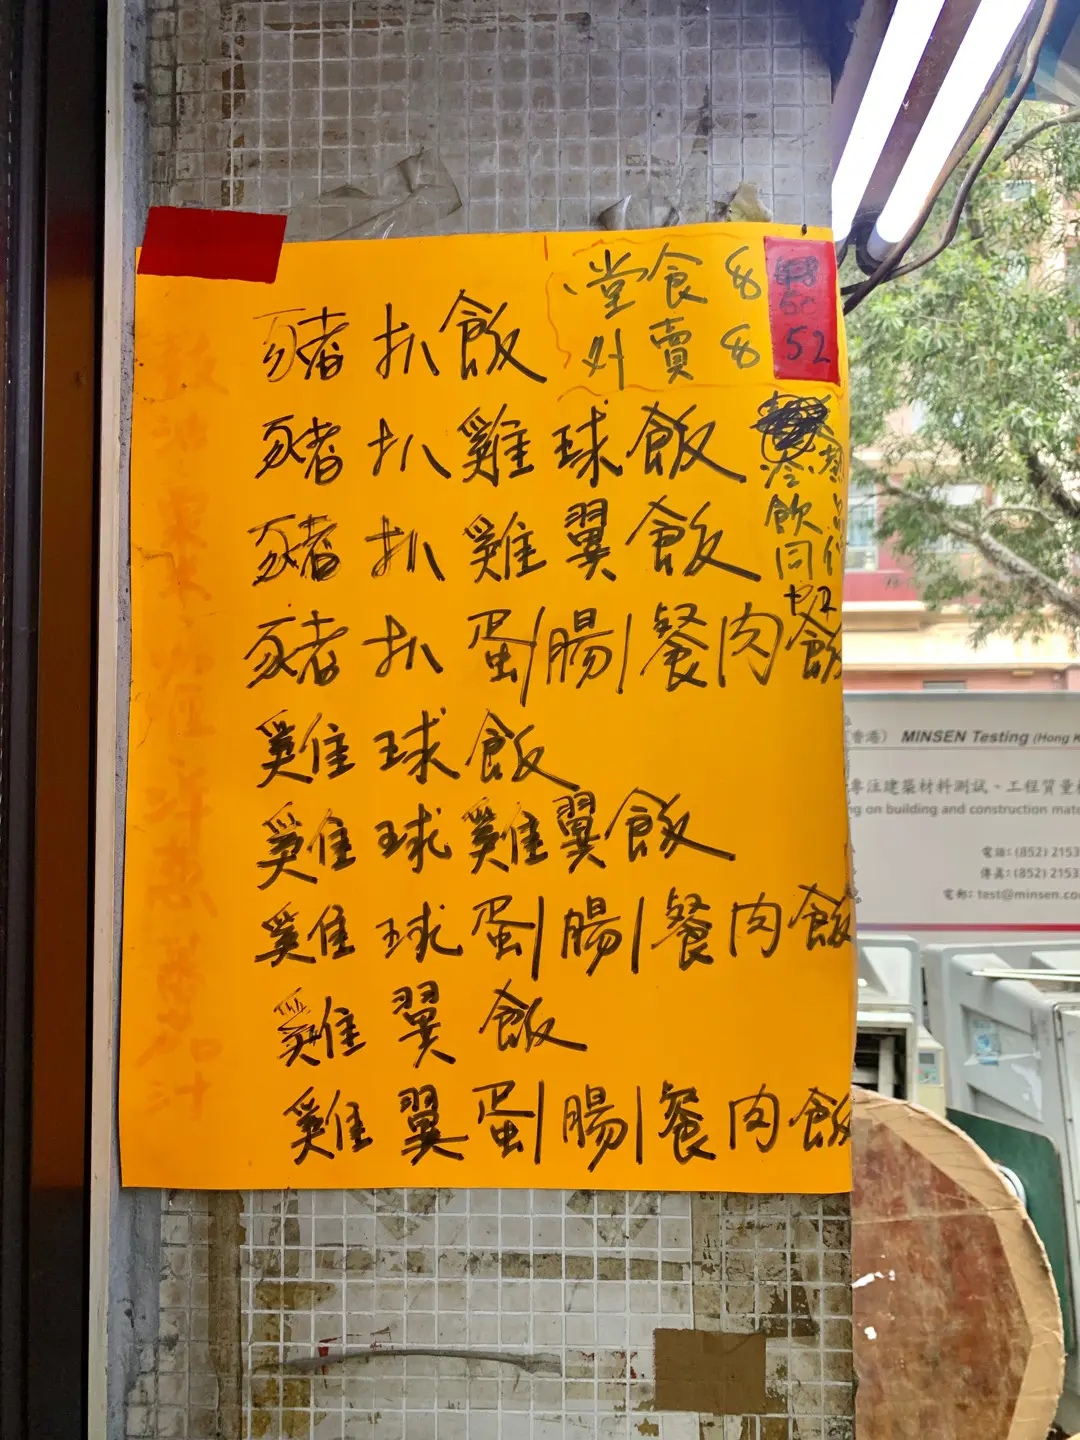 堂食 $
外賣 $ 52
豬扒飯
豬扒雞球飯
豬扒雞翼飯
豬扒蛋/腸/餐肉飯
雞球飯
雞球雞翼飯
雞球蛋/腸/餐肉飯
雞翼飯
雞翼蛋/腸/餐肉飯
冷飲同
汁
(香港) MINSEN Testing (Hong K
專注建築材料測試、工程質量
ng on building and construction mate
電話: (852) 2153
傳真: (852) 2153
電郵: test@minsen.co